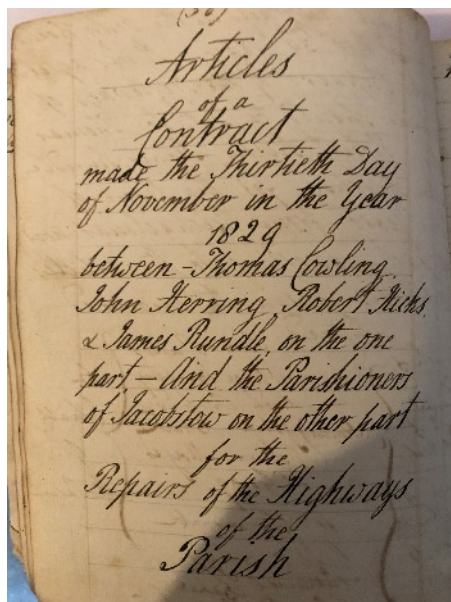 Articles
of a
Contract
made the Thirtieth Day
of November in the Year
1829
between - Thomas Cowling,
John Herring, Robert Hicks,
& James Rundle, on the one
part, - And the Parishioners
of Jacobstow on the other part
for the
Repairs of the Highways
of the
Parish